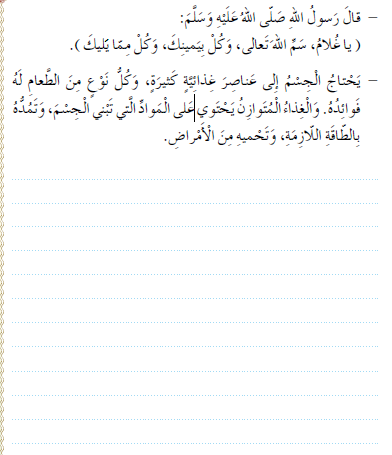 – قالَ رَسولُ اللهِ صَلّى اللهُ عَلَيْهِ وَسَلَّمَ:
( يا غُلامُ، سَمِّ اللهَ تَعالى، وَكُلْ بِيَمينِكَ، وَكُلْ مِمّا يَليكَ ).
– يَحْتاجُ الْجِسْمُ إِلى عَناصِرَ غِذائِيَّةٍ كَثيرَةٍ، وَكُلُّ نَوْعٍ مِنَ الطَّعامِ لَهُ
فَوائِدُهُ. وَالْغِذاءُ الْمُتَوازِنُ يَحْتَوي عَلى الْمَوادِّ الَّتي تَبْني الْجِسْمَ، وَتَمُدُّهُ
بِالطّاقَةِ اللّازِمَةِ، وَتَحْميهِ مِنَ الْأَمْراضِ.